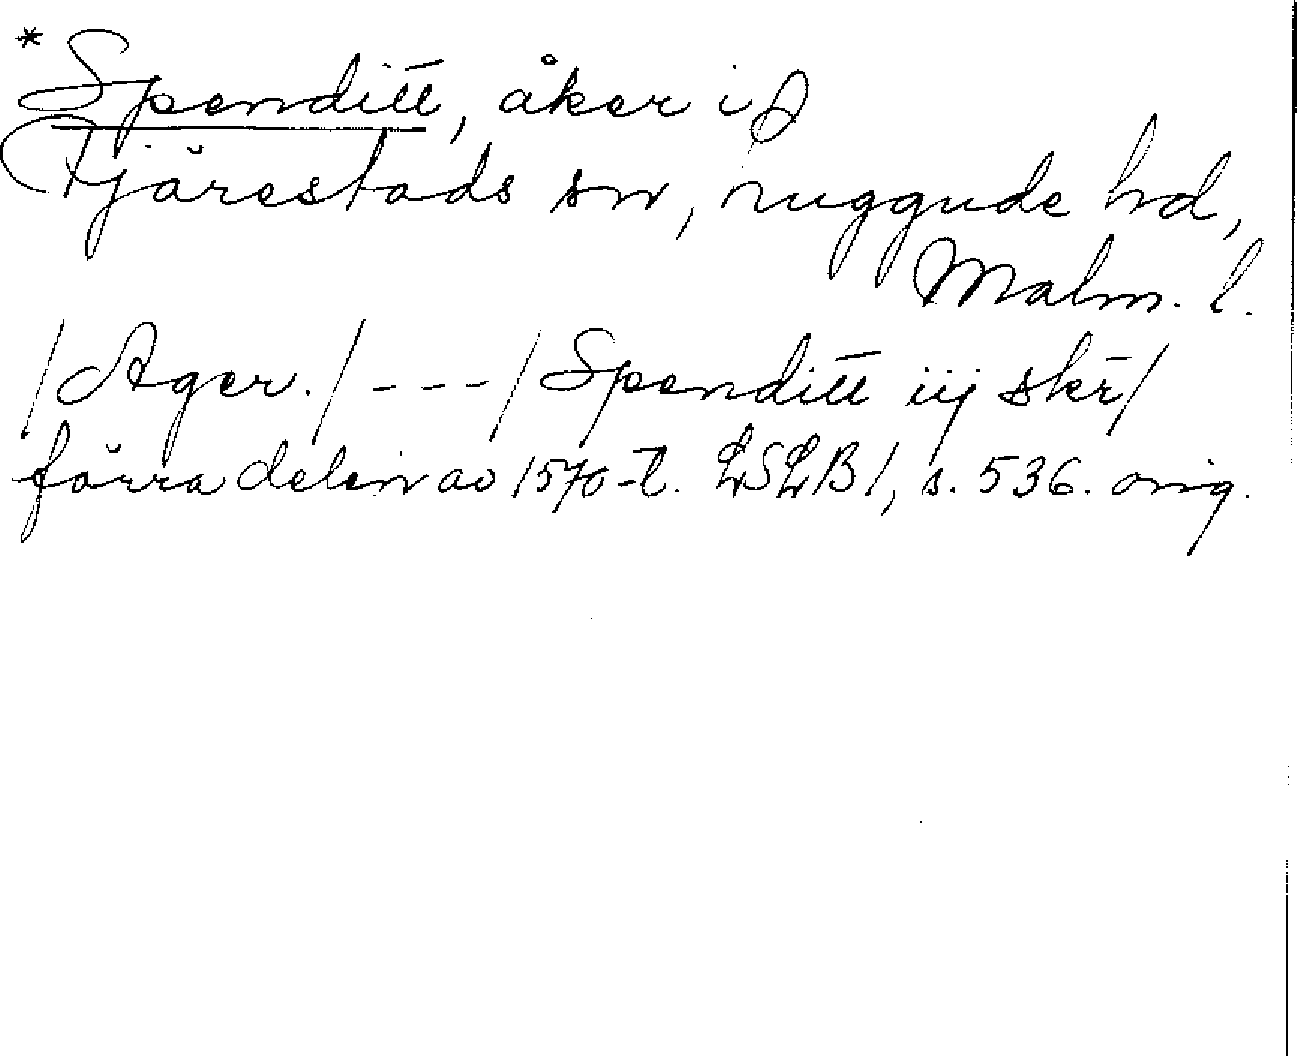 *Spenditt, åker i
Fjärestads sn, Luggude hd,
Malm. l.
/Ager./ - - - / Spenditt iij skr̄/
förra delen av 1570-t. LSLB 1, s. 536. orig.